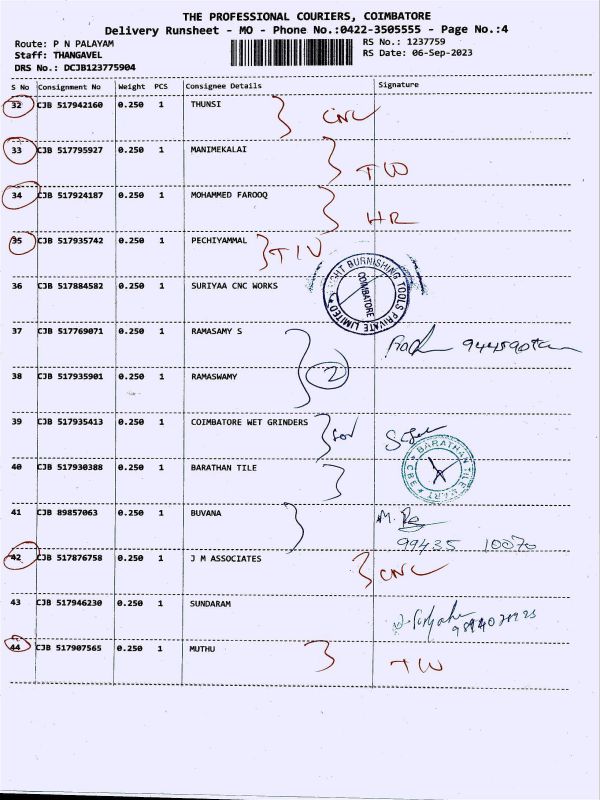 THE PROFESSIONAL COURIERS, COIMBATORE
Delivery Runsheet - MO - Phone No.:0422-3505555 - Page No.:4
Route: P N PALAYAM RS No.: 1237759
Staff: THANGAVEL RS Date: 06-Sep-2023
DRS No.: DCJB123775904
S No Consignment No Weight PCS Consignee Details Signature
32 CJB 517942160 0.250 1 THUNSI CNC
33 CJB 517795927 0.250 1 MANIMEKALAI
TW
34 CJB 517924187 0.250 1 MOHAMMED FAROOQ
HR
35 CJB 517935742 0.250 1 PECHIYAMMAL
36 CJB 517884582 0.250 1 SURIYAA CNC WORKS
BURNISHING TOOLS PRIVATE LIMITED
COIMBATORE
37 CJB 517769071 0.250 1 RAMASAMY S
38 CJB 517935901 0.250 1 RAMASWAMY 2
39 CJB 517935413 0.250 1 COIMBATORE WET GRINDERS
40 CJB 517930388 0.250 1 BARATHAN TILE
BARATHAN TILE MART
CBE
41 CJB 89857063 0.250 1 BUVANA
99435 10070
42 CJB 517876758 0.250 1 J M ASSOCIATES
CNC
43 CJB 517946230 0.250 1 SUNDARAM
44 CJB 517907565 0.250 1 MUTHU
TW